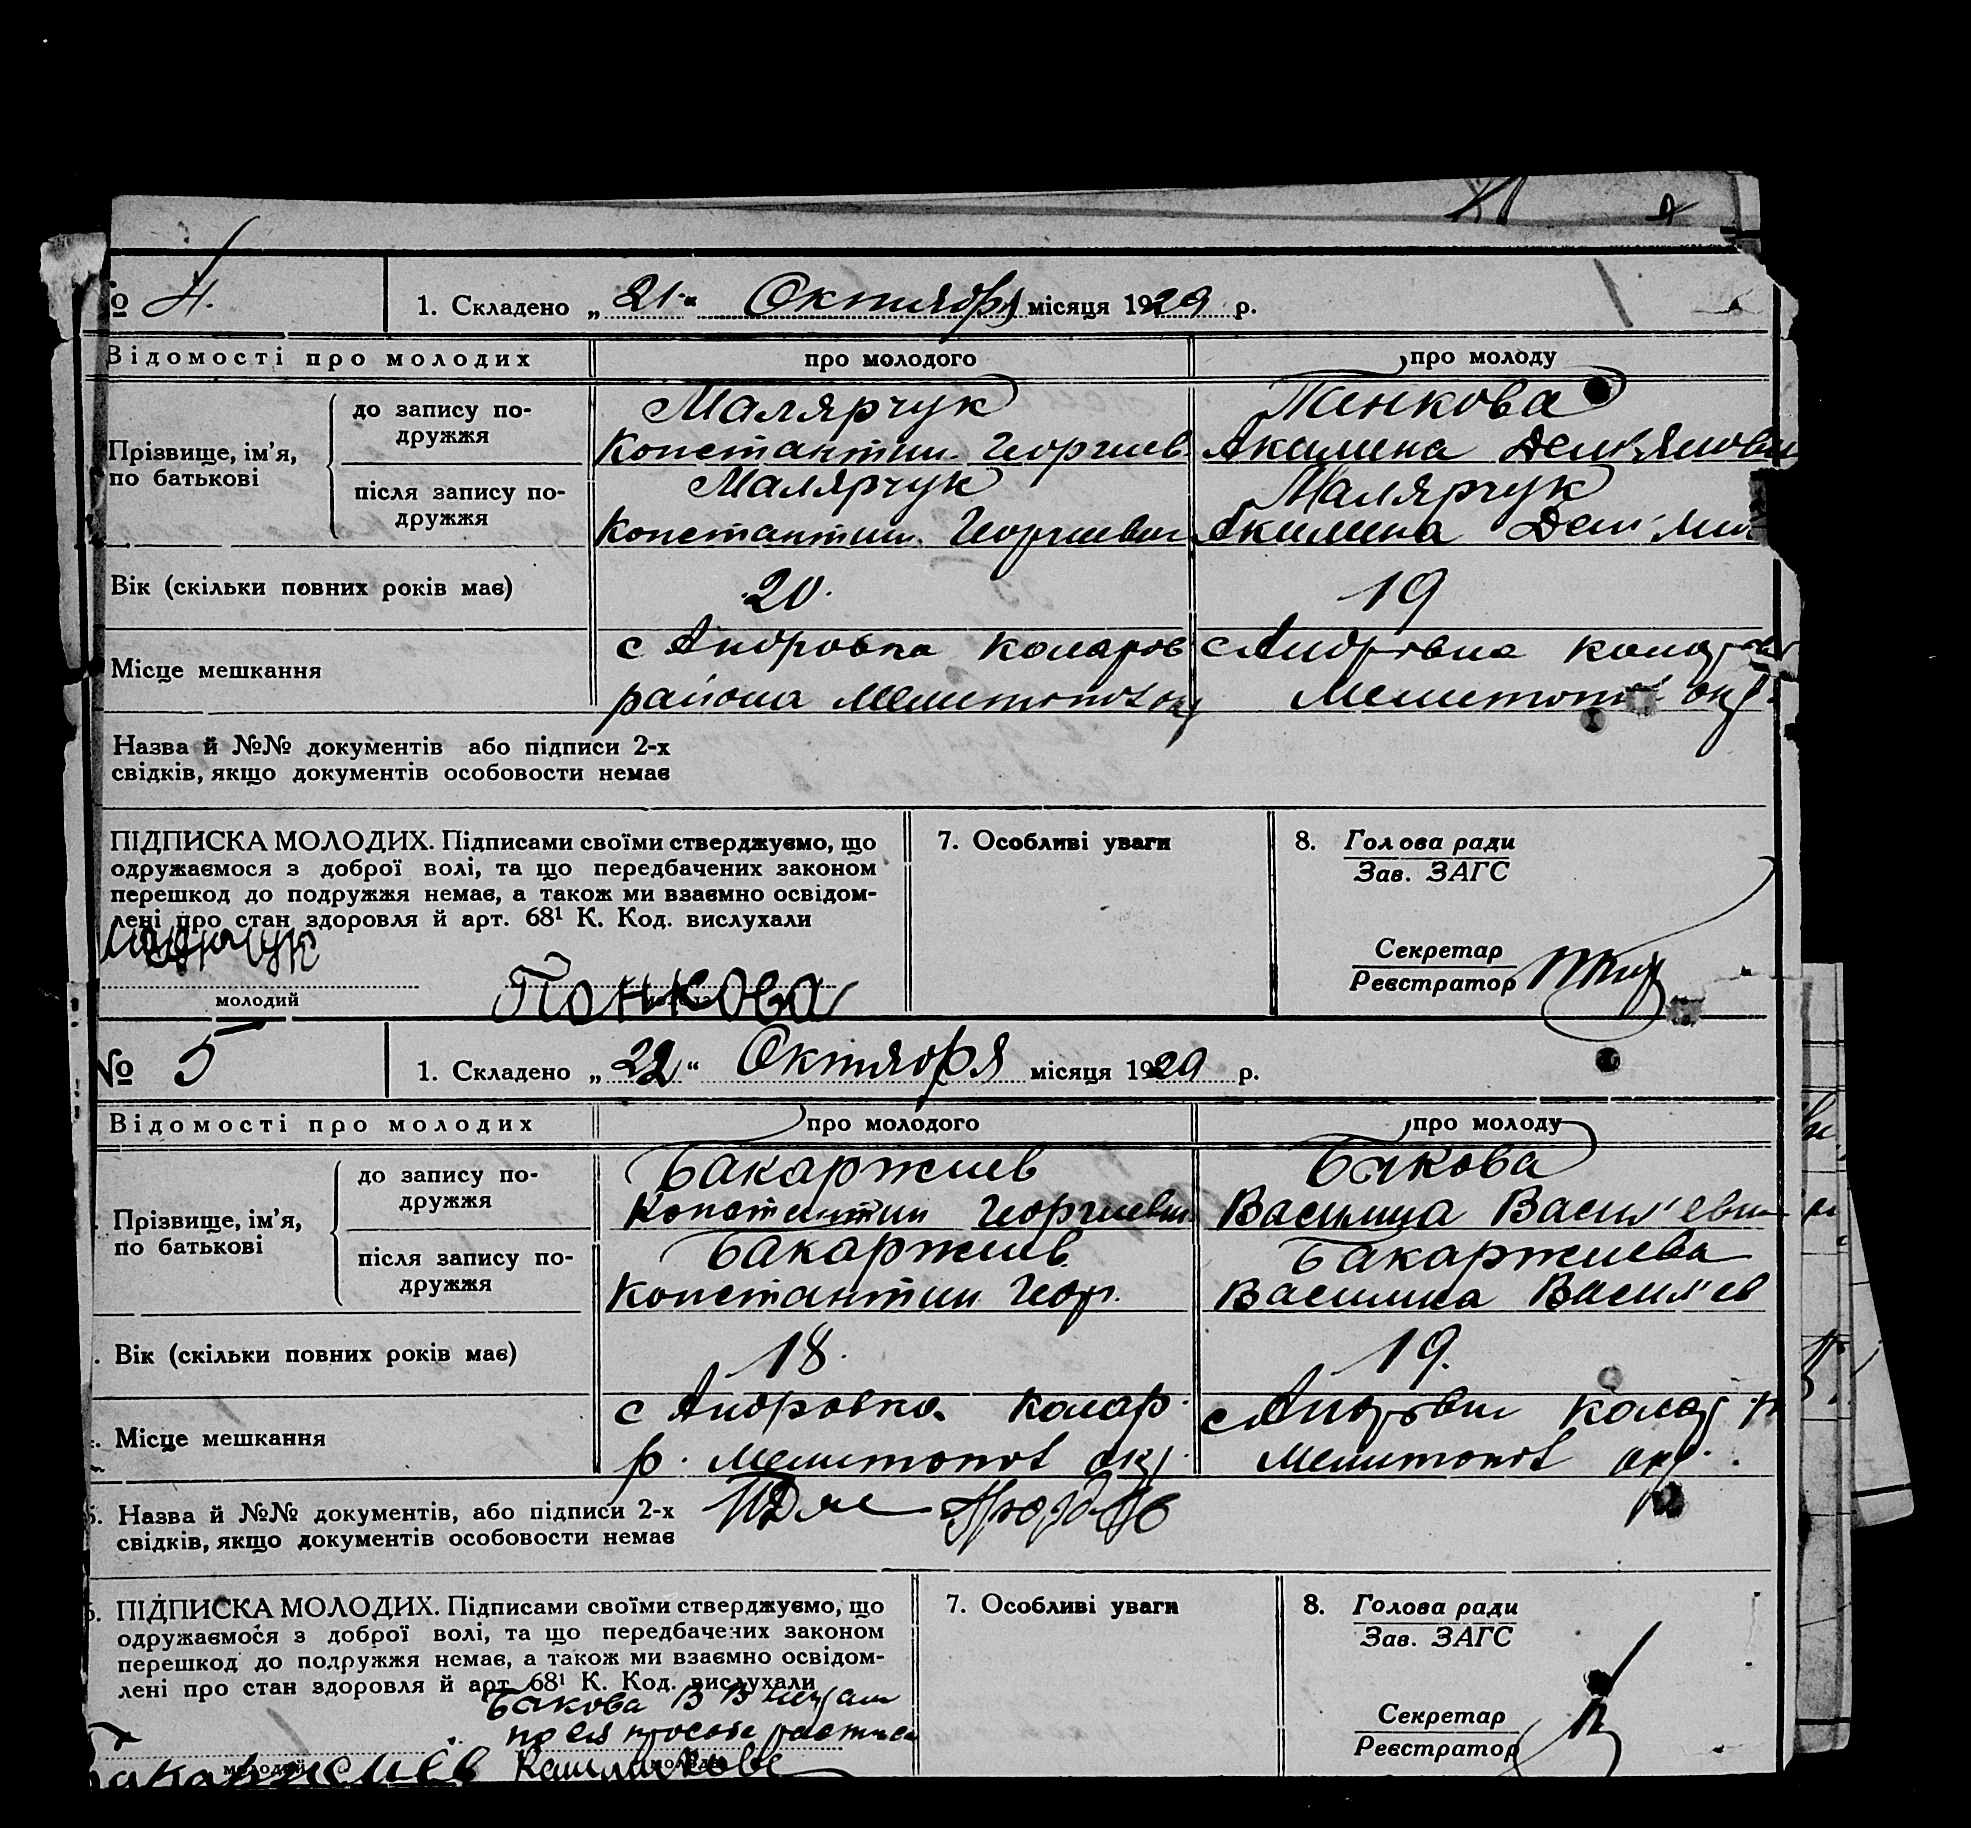 № 4. 1. Складено „21“ Октября місяця 1929 р.
Відомості про молодих про молодого про молоду
Прізвище, ім’я, по батькові
до запису по-дружжя
Малярчук Панкова
Константин Георгиев. Акилина Дем'янови
після запису по-дружжя
Малярчук Малярчук
Константин Георгиевич Акилина Дем'ян
Вік (скільки повних років має) 20. 19
Місце мешкання
с Андровка Коларов с Андровка
района Мелитопол окр Мелитопол окр.
Назва й №№ документів або підписи 2-х
свідків, якщо документів особовости немає
ПІДПИСКА МОЛОДИХ. Підписами своїми стверджуємо, що
одружаємося з доброї волі, та що передбачених законом
перешкод до подружжя немає, а також ми взаємно освідом-
лені про стан здоровля й арт. 68¹ К. Код. вислухали
Малярчук
молодий
Панкова
7. Особливі уваги
8. Голова ради
Зав. ЗАГС
Секретар
Реєстратор
№ 5 1. Складено „22“ Октября місяця 1929 р.
Відомості про молодих про молодого про молоду
Прізвище, ім’я, по батькові
до запису по-дружжя
Бакаржиев Быкова
Константин Георгиевич Василица Васил'евн
після запису по-дружжя
Бакаржиев Бакаржиева
Константин Геор. Василица Васил'ев
Вік (скільки повних років має) 18. 19.
Місце мешкання
с Андровка Колар. с Андровки Колар р
р. Мелитопол окр. Мелитопол окр.
5. Назва й №№ документів, або підписи 2-х
свідків, якщо документів особовости немає
6. ПІДПИСКА МОЛОДИХ. Підписами своїми стверджуємо, що
одружаємося з доброї волі, та що передбачених законом
перешкод до подружжя немає, а також ми взаємно освідом-
лені про стан здоровля й арт. 68¹ К. Код. вислухали
Быкова В В
по ея просьбе
Бакаржиев
молодий
молода
7. Особливі уваги
8. Голова ради
Зав. ЗАГС
Секретар
Реєстратор